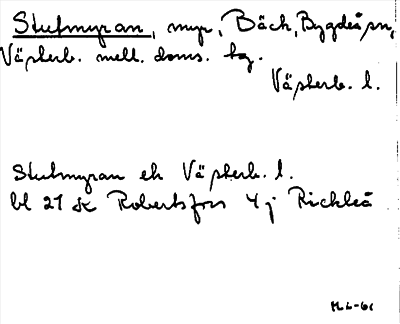 Stutmyran, myr, Bäck, Bygdeå sn,
Västerb. mell. doms. tg.
Västerb. l.
Stutmyran ek Västerb. l.
bl 21 sk Robertsfors 4 j Rickleå